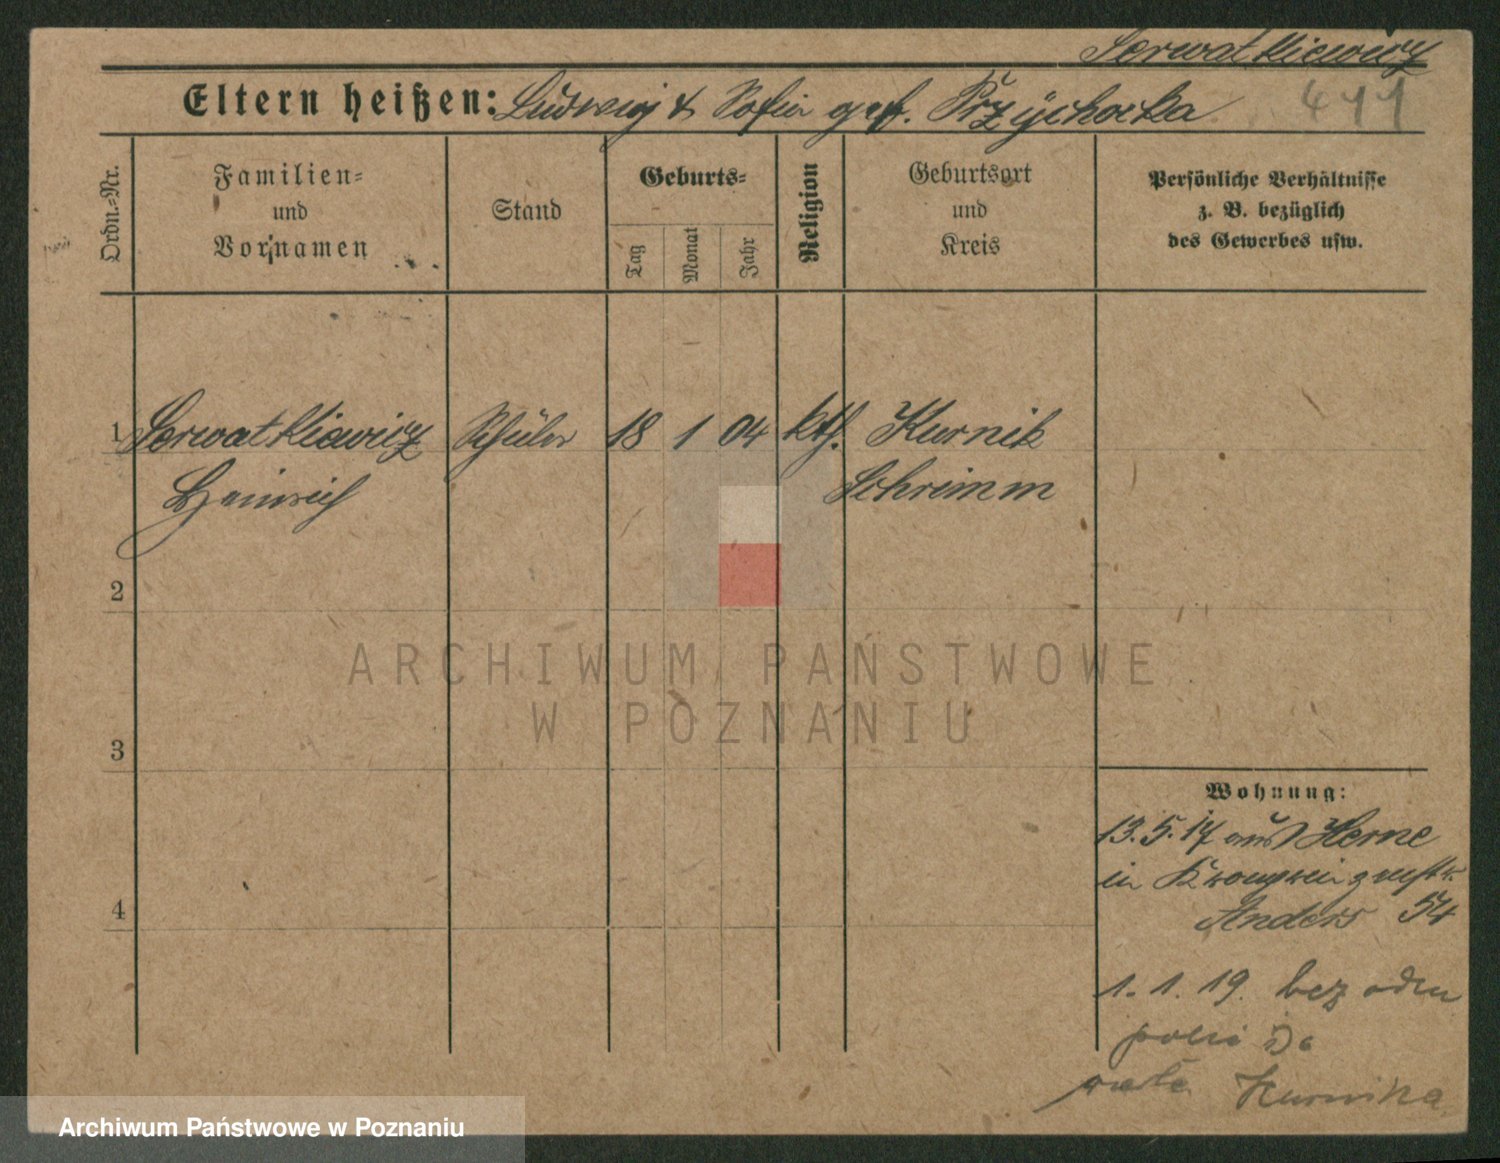 Serwatkiewicz
Eltern heißen: Ludwig & Sofia geb. Przychocka 411
Ordn.-Nr.
Familien-
und
Vornamen
Stand
Geburts-
Tag
Monat
Jahr
Religion
Geburtsort
und
Kreis
Persönliche Verhältnisse
z. B. bezüglich
des Gewerbes usw.
1 Serwatkiewicz Schüler 18 1 04 kth. Kurnik
Heinrich Schrimm
2
3
4
Wohnung:
13.5.17 aus Herne
in
Anders 54
1. 1. 19. bez
do
Kurnika
ARCHIWUM PAŃSTWOWE
W POZNANIU
Archiwum Państwowe w Poznaniu